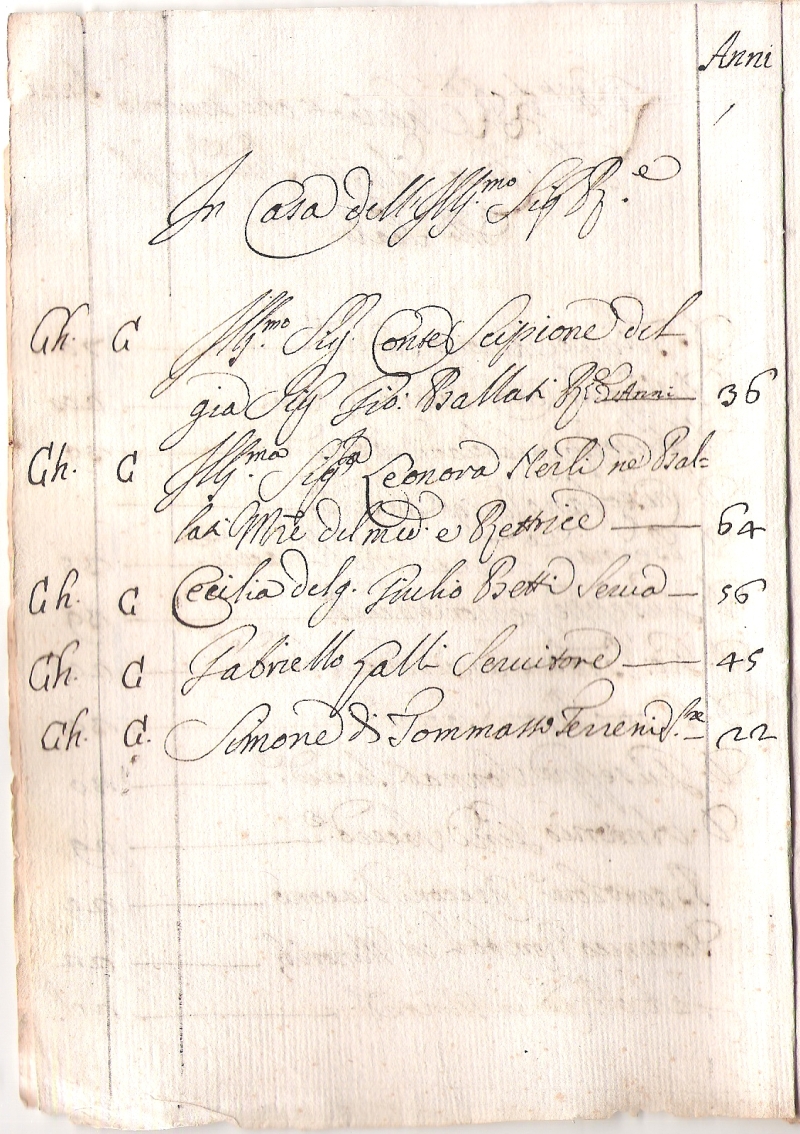 Anni
In Casa dell'Ill.mo Sig R.e
Ch. C Ill.mo Sig. Conte Scipione del
gia Sig Gio: Ballati R.e d'Anni 36
Ch. C Ill.ma Sig.ra Leonora Nerli ne Bal=
lati M.re del med.o e Rettrice 64
Ch. C Cecilia del q. Giulio Betti Serva 56
Ch. C Gabriello Galli Servitore 45
Ch. C. Simone di Tommasso Terreni S.re 22